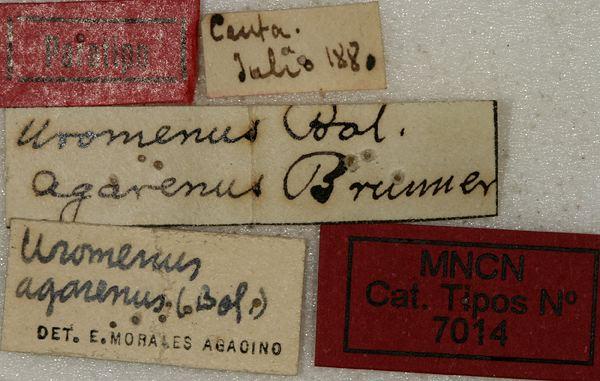 Paratipo
Ceuta.
Julio 1880
Uromenus Bol.
agarenus Brunner
Uromenus
agarenus (Bol.)
DET. E. MORALES AGACINO
MNCN
Cat. Tipos Nº
7014